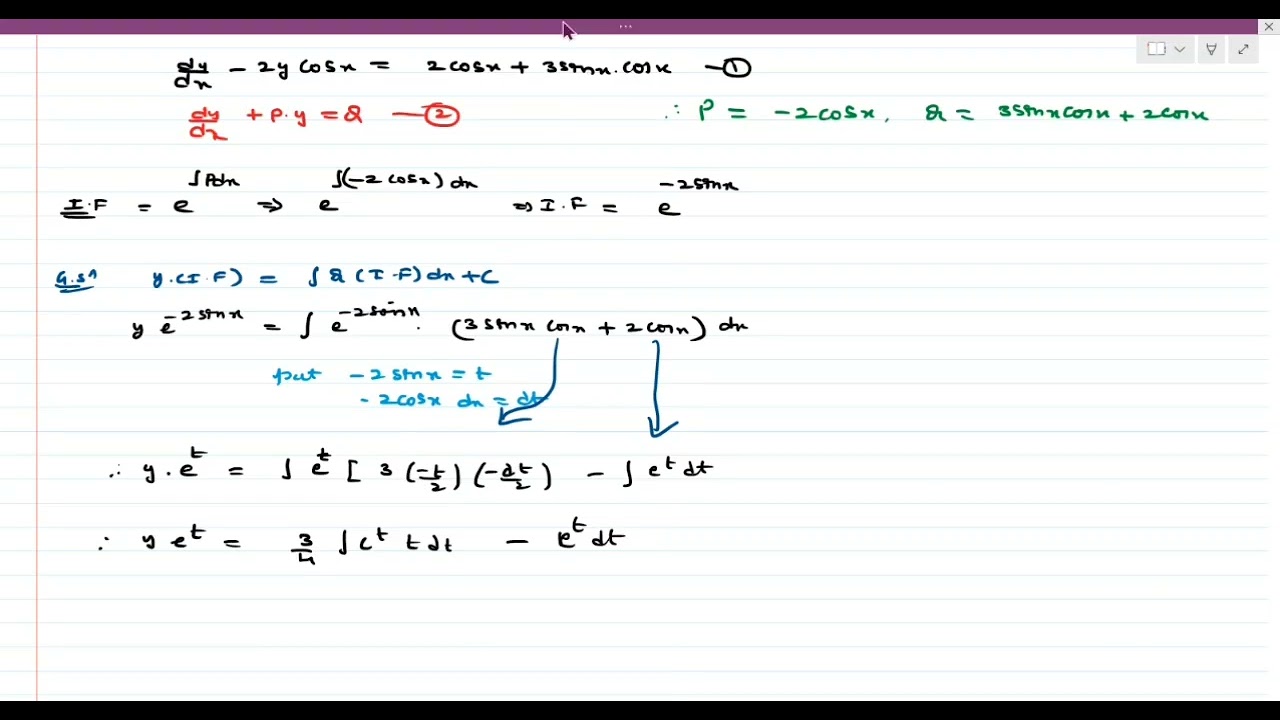 dy/dx - 2y cosx = 2cosx + 3sinx.cosx — ①
dy/dx + P.y = Q — ②
∴ P = -2cosx, Q = 3sinxcosx + 2cosx
I.F = e^∫Pdx ⇒ e^∫(-2cosx)dx ⇒ I.F = e^-2sinx
G.Sⁿ y.(I.F) = ∫Q(I.F)dx + C
y e^-2sinx = ∫e^-2sinx. (3sinx cosx + 2cosx) dx
put -2sinx = t
-2cosx dx = dt
∴ y.e^t = ∫e^t [ 3(-t/2)(-dt/2) - ∫e^t dt
∴ y e^t = 3/4 ∫e^t t dt - e^t dt